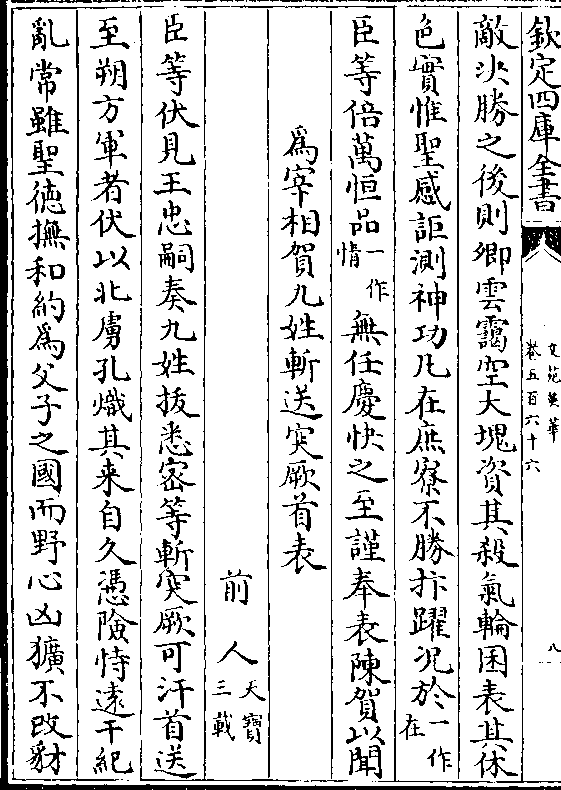 欽定四庫全書
文苑英華
卷五百六十六
八
敵决勝之後則卿雲靄空大塊資其殺氣輪囷表其休
色實惟聖感詎測神功凡在庶寮不勝抃躍况於一作在
臣等倍萬恒品一作情無任慶快之至謹奉表陳賀以聞
為宰相賀九姓斬送突厥首表
前人天寶三載
臣等伏見王忠嗣奏九姓拔悉密等斬突厥可汗首送
至朔方軍者伏以北虜孔熾其来自久憑險恃遠干紀
亂常雖聖徳撫和約為父子之國而野心凶獷不改豺